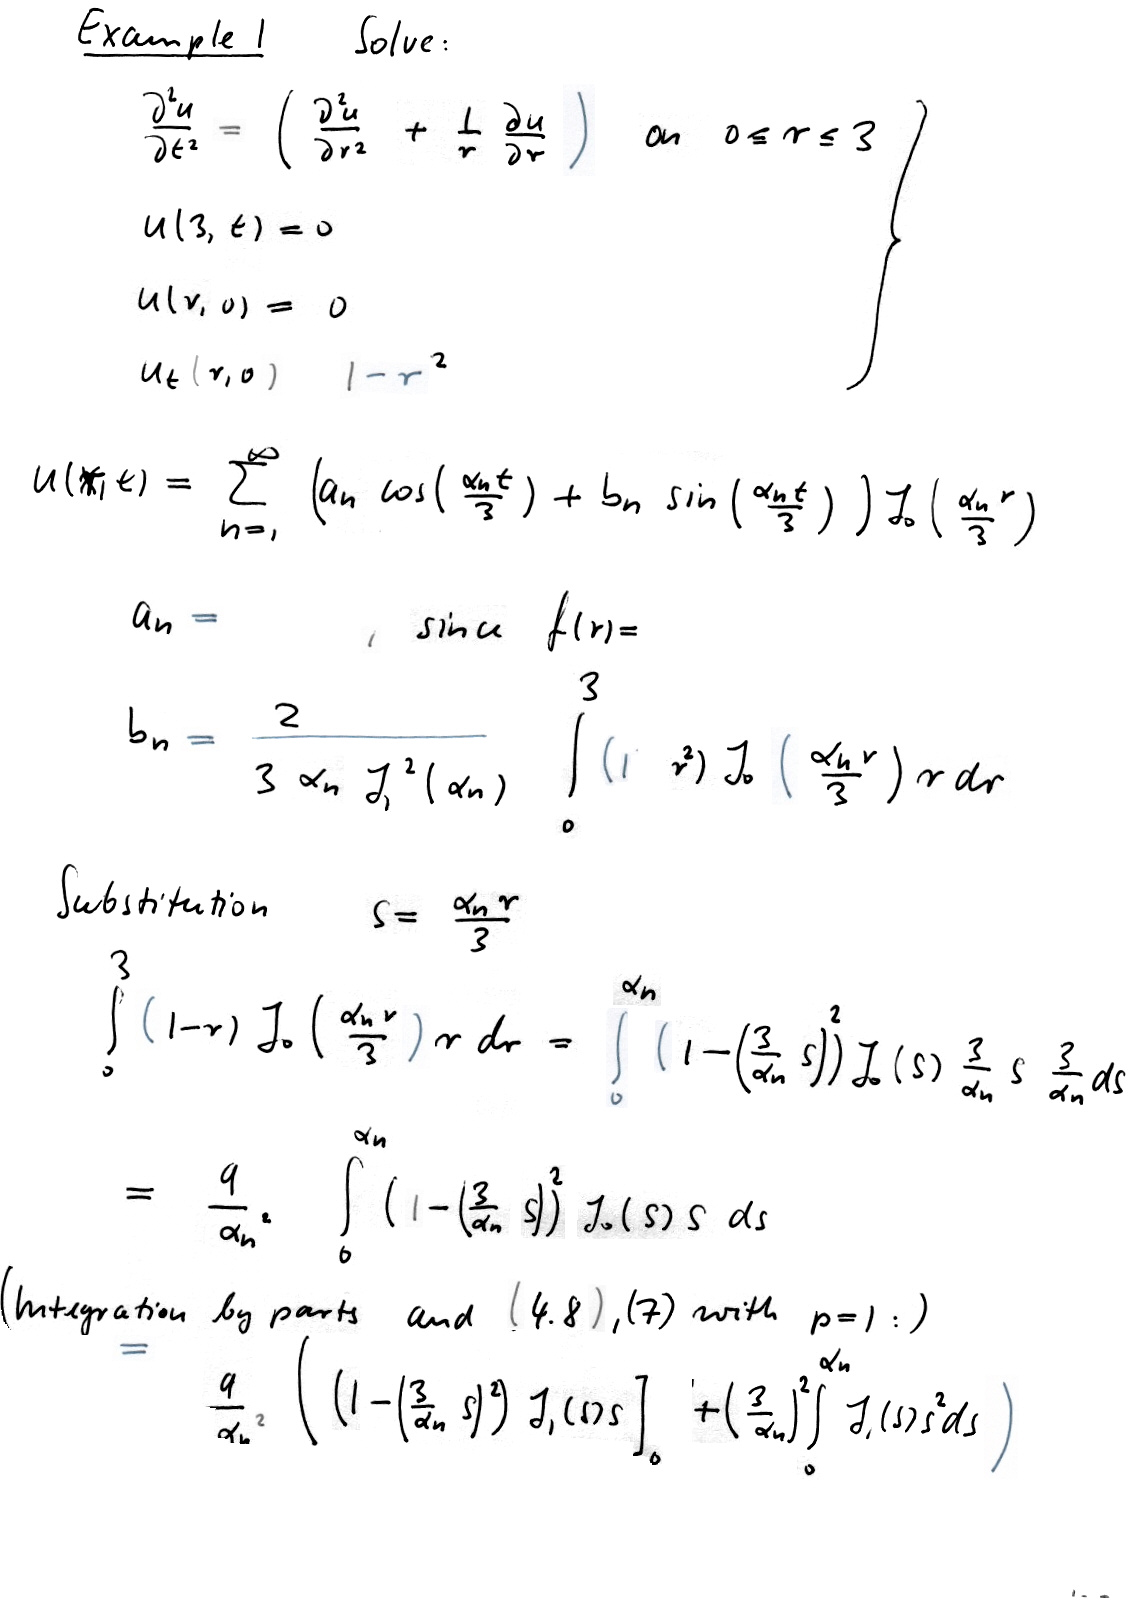 Example 1 Solve:
∂²u/∂t² = ( ∂²u/∂r² + 1/r ∂u/∂r ) on 0 ≤ r ≤ 3
u(3, t) = 0
u(r, 0) = 0
u_t(r, 0) 1 - r²
u(r, t) = ∑_{n=1}^{∞} (a_n cos(α_n t/3) + b_n sin(α_n t/3)) J_0(α_n r/3)
a_n = , since f(r) =
b_n = 2/(3 α_n J_1²(α_n)) ∫_0^3 (1 r²) J_0(α_n r/3) r dr
Substitution s = α_n r/3
∫_0^3 (1-r) J_0(α_n r/3) r dr = ∫_0^{α_n} (1-(3/α_n s))² J_0(s) 3/α_n s 3/α_n ds
= 9/α_n² ∫_0^{α_n} (1-(3/α_n s))² J_0(s) s ds
(Integration by parts and (4.8), (7) with p=1:)
= 9/α_n² ( (1-(3/α_n s)²) J_1(s)s ]_0 + (3/α_n)² ∫_0^{α_n} J_1(s)s² ds )